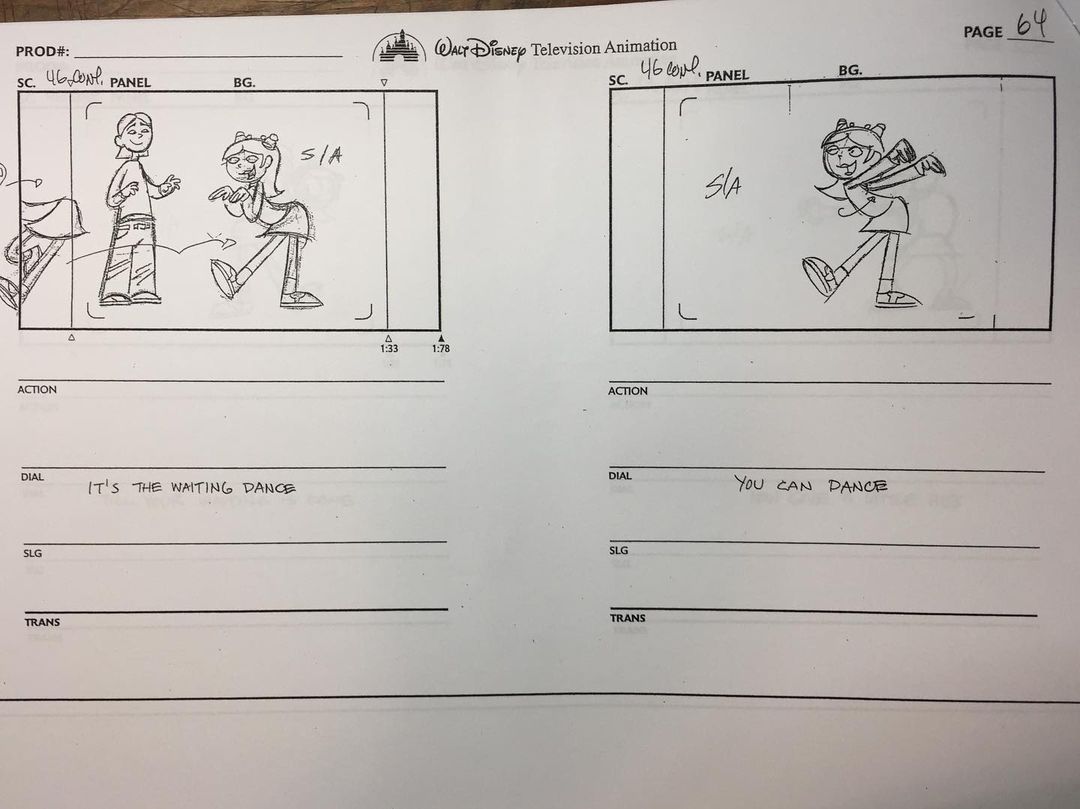 PROD#:
WALT DISNEY Television Animation
PAGE 64
SC. 46 CONT. PANEL BG.
S/A
1:33
1:78
ACTION
DIAL IT'S THE WAITING DANCE
SLG
TRANS
SC. 46 CONT. PANEL BG.
S/A
ACTION
DIAL YOU CAN DANCE
SLG
TRANS